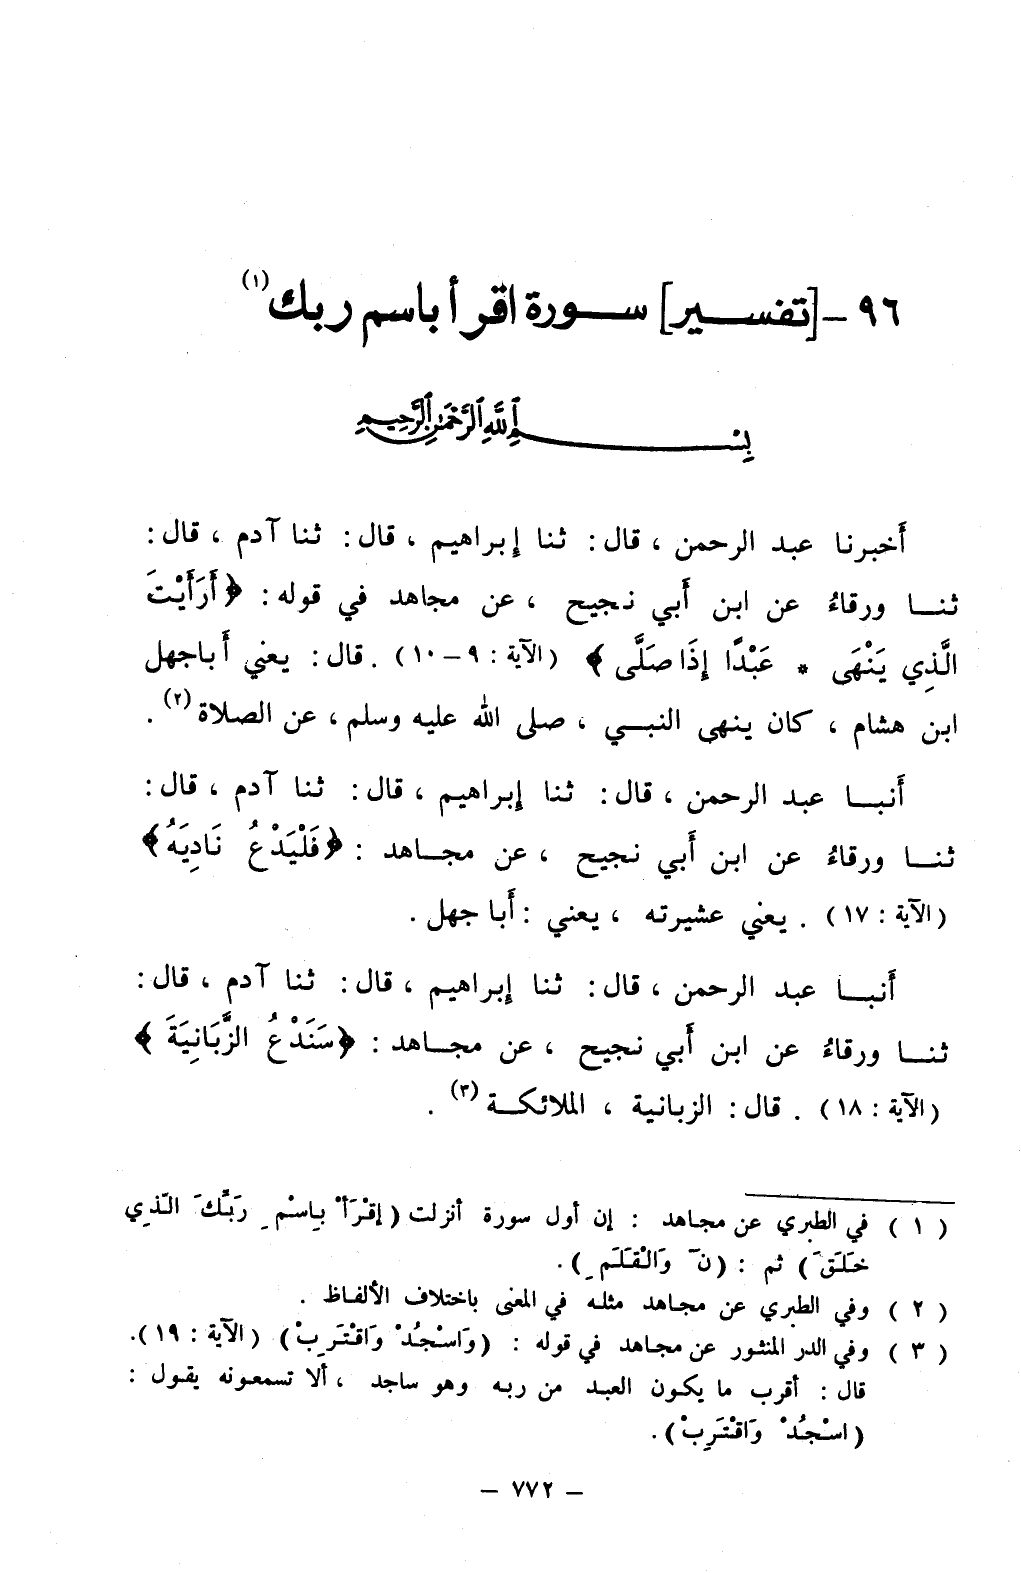 ٩٦ - [تفسير] سورة اقرأ باسم ربك (١)
بِسْمِ اللَّهِ الرَّحْمَنِ الرَّحِيمِ
أخبرنا عبد الرحمن ، قال : ثنا إبراهيم ، قال : ثنا آدم ، قال :
ثنا ورقاءُ عن ابن أبي نجيح ، عن مجاهد في قوله : ﴿أَرَأَيْتَ
الَّذِي يَنْهَى * عَبْدًا إِذَا صَلَّى﴾ (الآية : ٩ - ١٠) . قال : يعني أباجهل
ابن هشام ، كان ينهى النبي ، صلى الله عليه وسلم ، عن الصلاة (٢) .
أنبا عبد الرحمن ، قال : ثنا إبراهيم ، قال : ثنا آدم ، قال :
ثنا ورقاءُ عن ابن أبي نجيح ، عن مجاهد : ﴿فَلْيَدْعُ نَادِيَهُ﴾
(الآية : ١٧) . يعني عشيرته ، يعني : أبا جهل .
أنبا عبد الرحمن ، قال : ثنا إبراهيم ، قال : ثنا آدم ، قال :
ثنا ورقاءُ عن ابن أبي نجيح ، عن مجاهد : ﴿سَنَدْعُ الزَّبَانِيَةَ﴾
(الآية : ١٨) . قال : الزبانية ، الملائكة (٣) .
( ١ ) في الطبري عن مجاهد : إن أول سورة أنزلت (إقْرَأْ بِاسْمِ رَبِّكَ الَّذِي
خَلَقَ) ثم : (نۤ وَالْقَلَمِ) .
( ٢ ) وفي الطبري عن مجاهد مثله في المعنى باختلاف الألفاظ .
( ٣ ) وفي الدر المنثور عن مجاهد في قوله : (وَاسْجُدْ وَاقْتَرِبْ) (الآية : ١٩).
قال : أقرب ما يكون العبد من ربه وهو ساجد ، ألا تسمعونه يقول :
(اسْجُدْ وَاقْتَرِبْ) .
- ٧٧٢ -